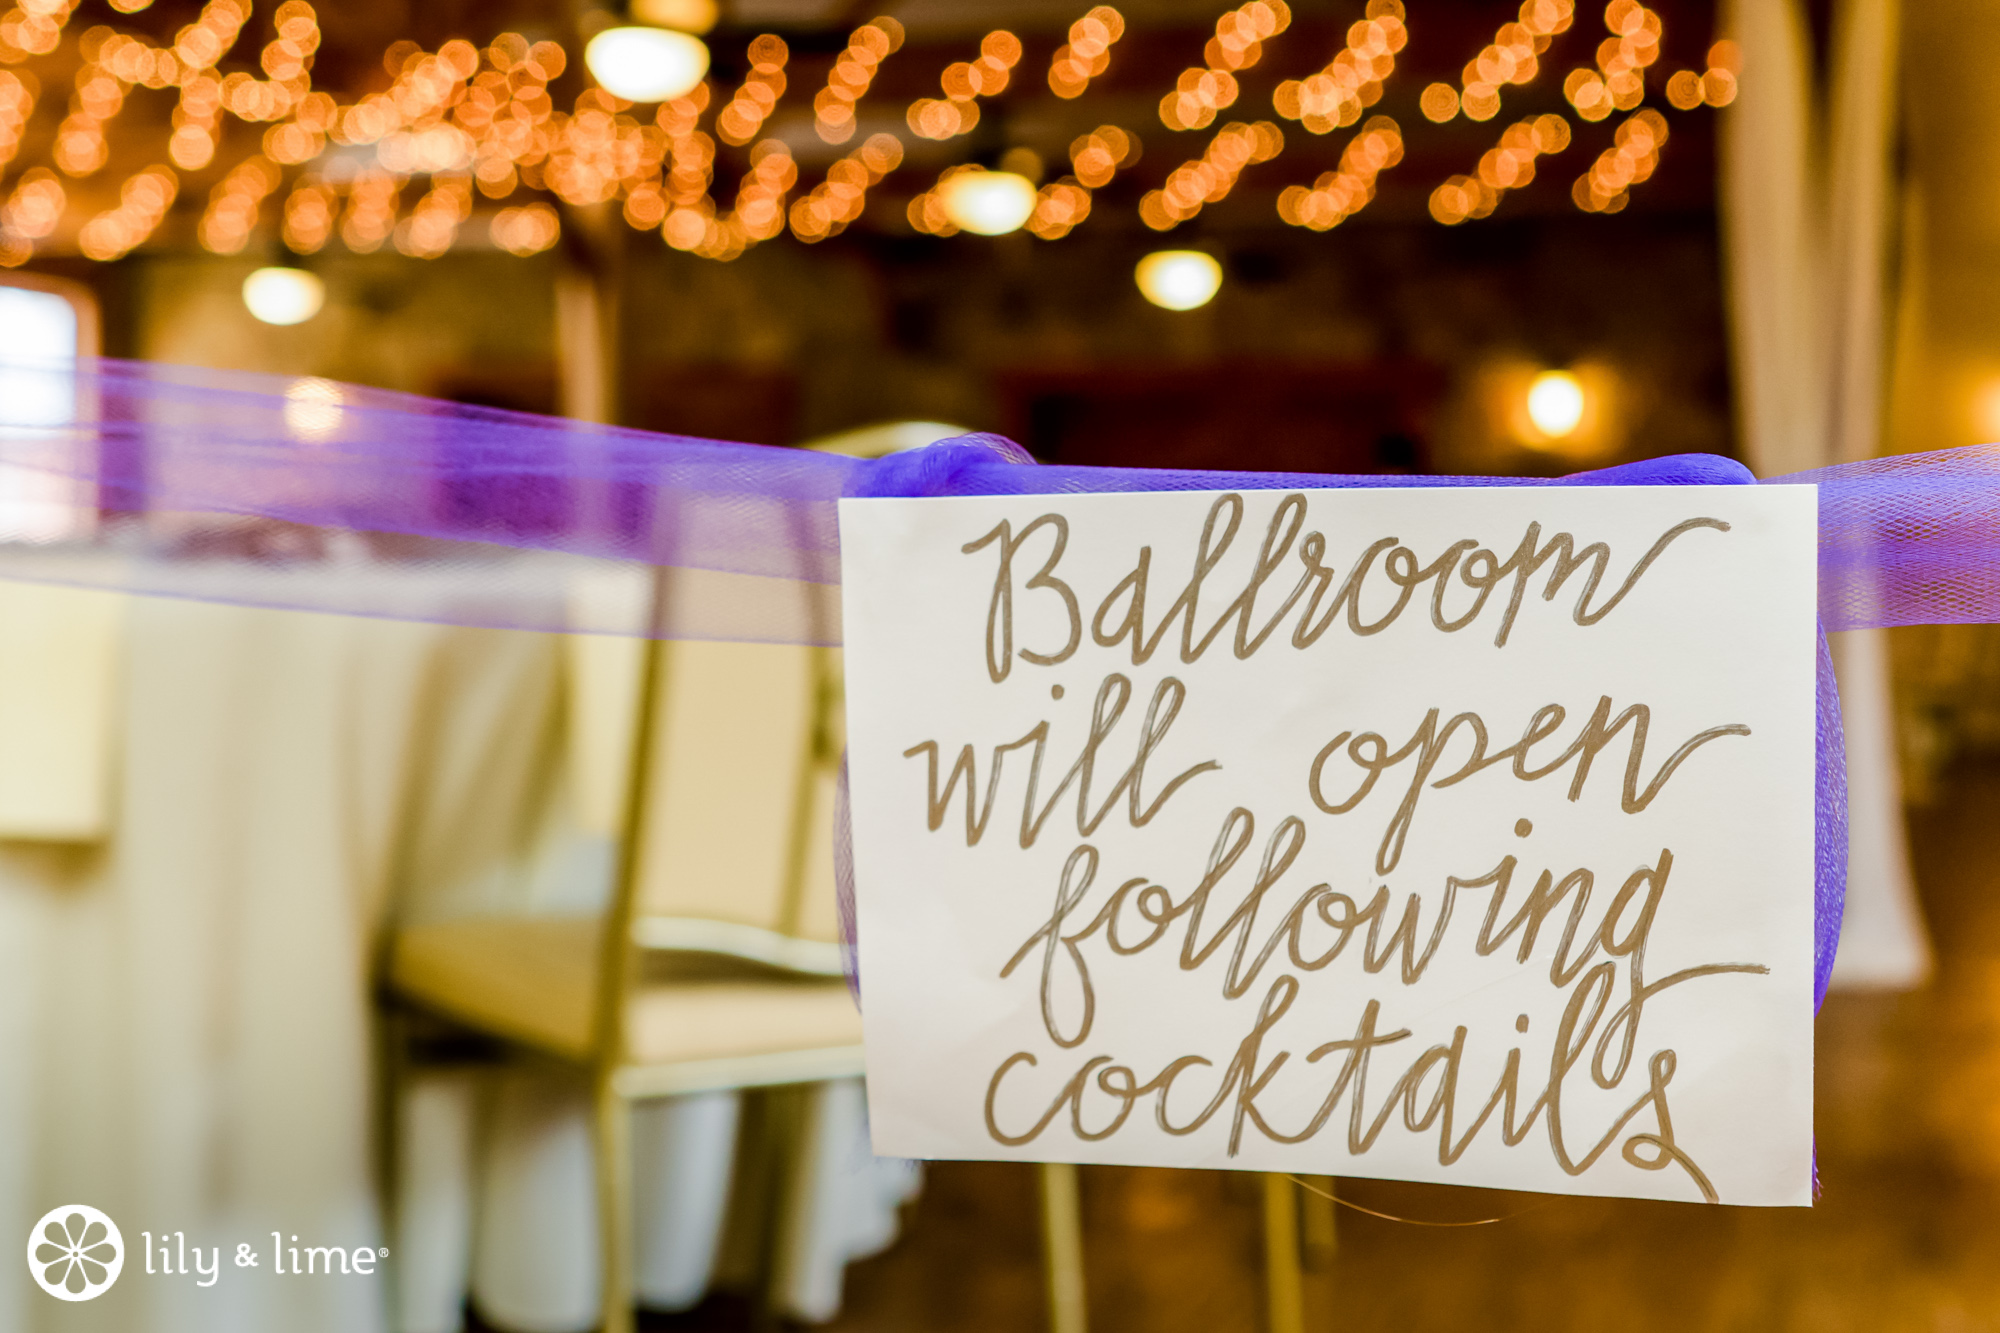 Ballroom
will open
following
cocktails
lily & lime®